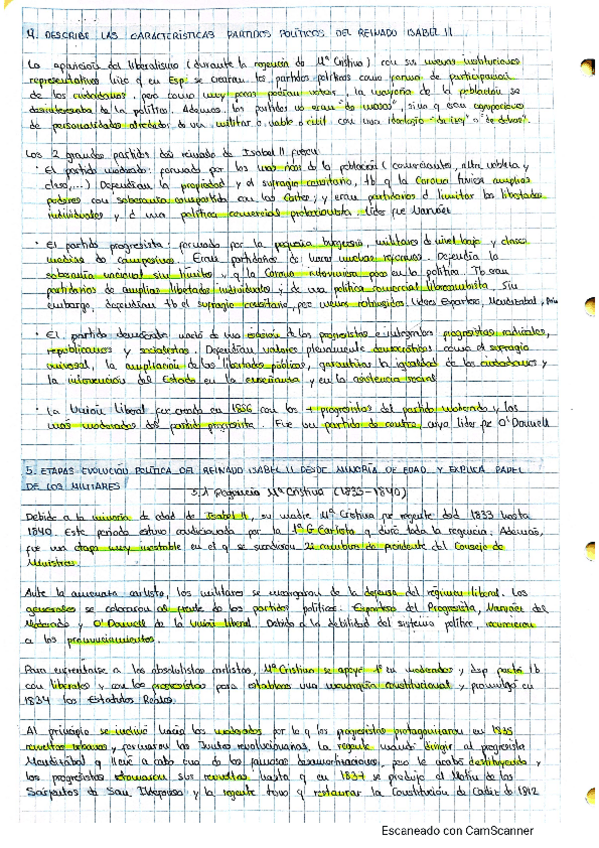 4. DESCRIBE LAS CARACTERÍSTICAS PARTIDOS POLÍTICOS DEL REINADO ISABEL II
La aparición del liberalismo (durante la regencia de Mª Cristina) con sus nuevas instituciones
representativas hizo q en Esp. se crearan los partidos políticos como forma de participación
de los ciudadanos, pero como muy pocos podían votar, la mayoría de la población se
desinteresaba de la política. Además, los partidos no eran "de masas", sino q eran agrupaciones
de personalidades alrededor de un militar o noble o civil con una ideología "de izq" o "de dchas".
Los 2 grandes partidos del reinado de Isabel II fueron:
· El partido moderado: formado por los más ricos de la población (comerciantes, alta nobleza y
clero,...) Defendían la propiedad y el sufragio censitario, tb q la Corona tuviera amplios
poderes con soberanía compartida con las Cortes; y eran partidarios d limitar las libertades
individuales y d una política comercial proteccionista. Líder fue Narváez
· El partido progresista: formado por la pequeña burguesía, militares de nivel bajo y clases
medias de campesinos. Eran partidarios de hacer muchas reformas. Defendía la
soberanía nacional sin límites y q la Corona interviniera poco en la política. Tb eran
partidarios de ampliar libertades individuales y de una política comercial librecambista. Sin
embargo, defendían tb el sufragio censitario, pero menos restringidos. Líderes Espartero, Mendizábal y Prim
· El partido demócrata nació de una escisión de los progresistas e integrados progresistas radicales,
republicanos y socialistas. Defendían valores plenamente democráticos como el sufragio
universal, la ampliación de las libertades públicas, garantizar la igualdad de los ciudadanos y
la intervención del Estado en la enseñanza y en la asistencia social
· La Unión Liberal fue creada en 1856 con los + progresistas del partido moderado y los
más moderados del partido progresista. Fue un partido de centro, cuyo líder fue O'Donnell
5. ETAPAS EVOLUCIÓN POLÍTICA DEL REINADO ISABEL II DESDE MINORÍA DE EDAD Y EXPLICA PAPEL
DE LOS MILITARES
5.1 Regencia Mª Cristina (1833-1840)
Debido a la minoría de edad de Isabel II, su madre Mª Cristina fue regente dsd 1833 hasta
1840. Este periodo estuvo condicionado por la 1ª G. Carlista q duró toda la regencia. Además,
fue una etapa muy inestable en el q se sucedieron 21 cambios de presidente del Consejo de
Ministros.
Ante la amenaza carlista, los militares se encargaron de la defensa del régimen liberal. Los
generales se colocaron al frente de los partidos políticos: Espartero del Progresista, Narváez del
Moderado y O'Donnell de la Unión liberal. Debido a la debilidad del sistema político, recurrieron
a los pronunciamientos.
Para enfrentarse a los absolutistas carlistas, Mª Cristina se apoyó 1º en moderados y dsp pactó tb
con liberales y con los progresistas para establecer una monarquía constitucional y promulgó en
1834 los Estatutos Reales.
Al principio se inclinó hacia los moderados por lo q los progresistas protagonizaron en 1835
revueltas urbanas y formaron las Juntas revolucionarias. La regente mandó dirigir al progresista
Mendizábal q llevó a cabo una de las famosas desamortizaciones, pero lo acabó destituyendo y
los progresistas retomaron sus revueltas hasta q en 1837 se produjo el Motín de los
Sargentos de San Ildefonso y la regente tuvo q restaurar la Constitución de Cádiz de 1812
Escaneado con CamScanner